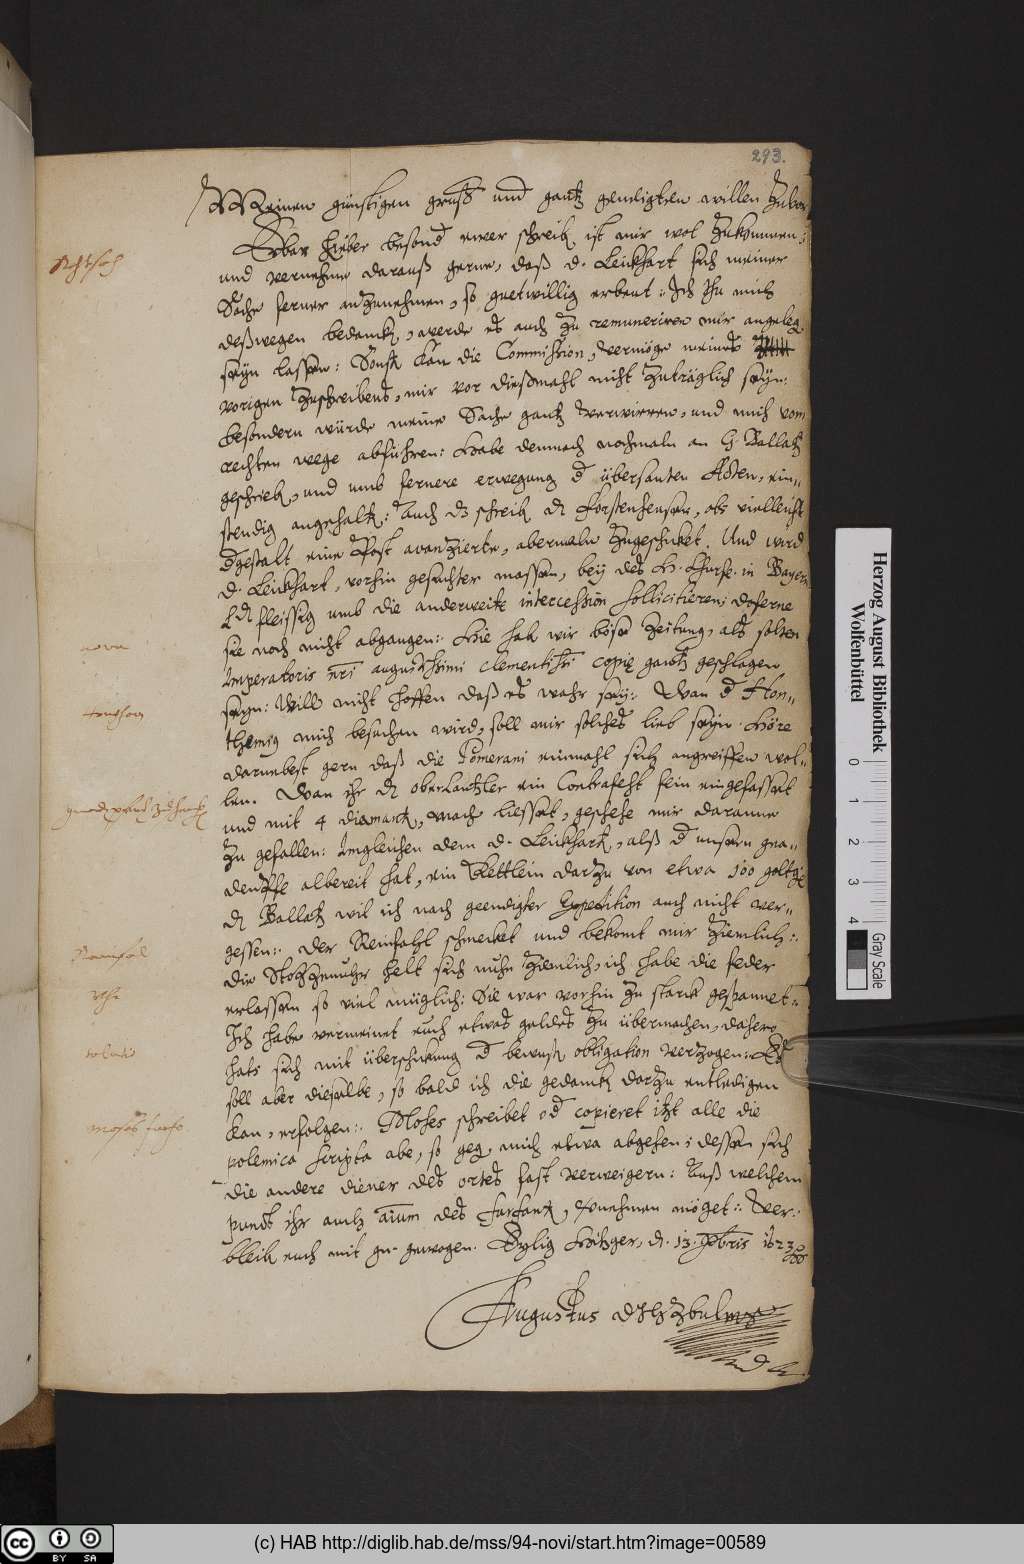 293.
Meinen günstigen gruß und gantz geneigten willen zuvor
Erbar lieber besond euer schreib ist mir wol zukommen;
und vernehme darauß gerne, daß d. Leickhart sich meiner
Sache ferner anzunehmen, so guetwillig erbeut: Ich thu mich
deßwegen bedanck, werde es auch zu remuneriren mir angeleg
seyn lassen: Sonst kan die Commission, vermöge meines
vorigen zuschreibens, mir vor dießmahl nicht zuträglich seyn:
besondern würde meine Sache gantz verwirren, und mich vom
rechten wege abführen: Habe demnach nochmaln an H. Ballatz
geschrieb, und umb fernere erwegung d übersanten Acten, ein-
stendig angehalt: Auch schreib
dgestalt eine Post avanzierte, abermaln zugeschicket. Und wird
d. Leickhart, vorhin gesuchter massen, bey des H. Churf. in Bayern
fleissig umb die anderweite intercession sollicitieren; doferne
sie noch nicht abgangen: Hie hab wir böse Zeitung, als solten
Imperatoris nri augustissimi clementissi copię gantz geschlagen
seyn: Will nicht hoffen daß es wahr sey: Wan d Hon-
themig mich besuchen wird, soll mir solches lieb seyn. Höre
darnebest gern daß die Pomerani einmahl sich angreiffen wol-
len. Wan ihr oberCantzler ein Contrafeht fein eingefasset
und mit 4 diamant, mach liesset, geschehe mir daranne
zu gefallen: Imgleichen dem d. Leickhart, alß d unsern gna-
albereit hat, ein kettlein darzu von etwa 100 goltg
Ballatz wil ich nach geendigter Expedition auch nicht ver-
gessen: der Reinfahl schmecket und bekomt mir ziemlich:
die Stotzenuhr helt sich nuhn ziemlich, ich habe die feder
erlassen so viel müglich: Sie war vorhin zu starck gespannet:
Ich habe vermeinet euch etwas geldes zu übermachen, dahero
hats sich mit überschickung d bewust obligation verzogen: Es
soll aber dieselbe, so bald ich die gedanck darzu entledigen
kan, erfolgen: Moses schreibet od copieret itzt alle die
polemica scripta abe, so geg mich etwa abgehen; dessen sich
die andere diener des ortes fast verweigern: Auß welchem
punct ihr auch aium des
bleib euch mit gn. gewogen. Eylig Hitzger, d. 13. 9bris 1623
Augustus
nova
Reinfal
Uhr
Herzog August Bibliothek
Wolfenbüttel
0 1 2 3 4
Gray Scale
cc BY SA
(c) HAB http://diglib.hab.de/mss/94-novi/start.htm?image=00589